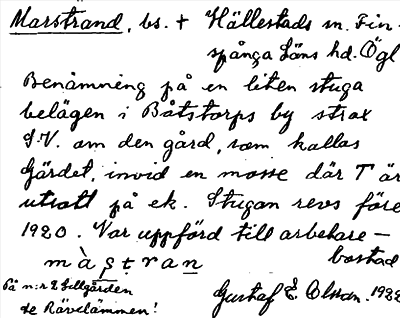 Marstrand, bs. + Hällestads sn. Fin-
spånga Läns hd. Ögl
Benämning på en liten stuga
belägen i Båtstorps by strax
S.V. om den gård, som kallas
Gärdet, invid en mosse där T är
utsatt på ek. Stugan revs före
1920. Var uppförd till arbetare-
bostad
màṣṭran
På n:r 2 Lillgården
se Rävelämmen!
Gustaf E. Olsson. 1922